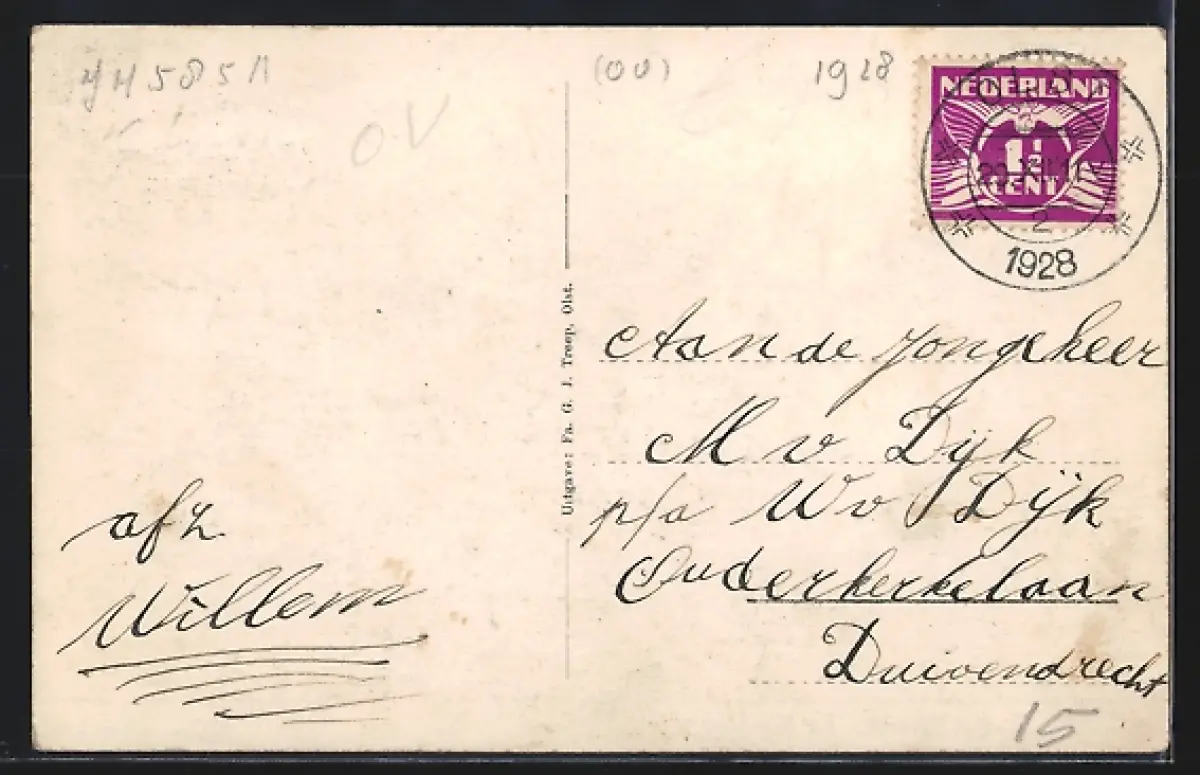 445851
(OV)
1928
OV
NEDERLAND
1½
CENT
2
1928
Uitgave: Fa. G. J. Treep, Olst.
Aan de jongeheer
M v Dijk
p/a W v Dijk
Ouderkerkelaan
Duivendrecht
afz.
Willem
15